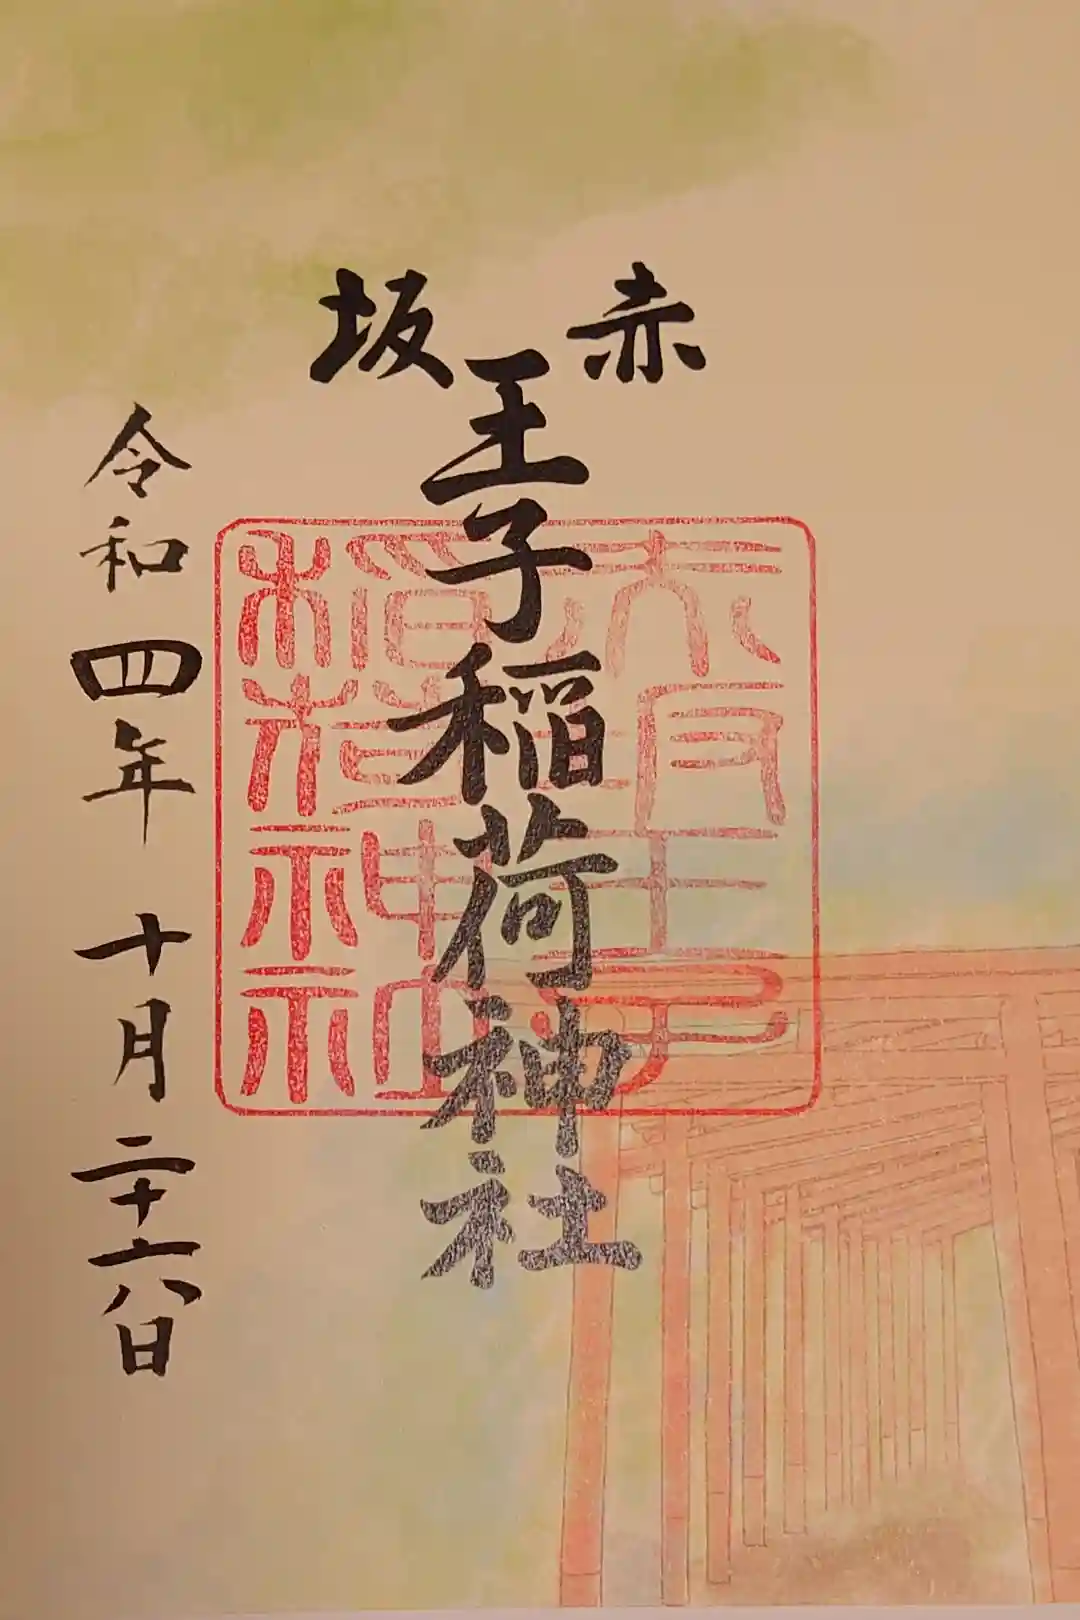 赤坂
王子稲荷神社
令和四年 十月二十六日